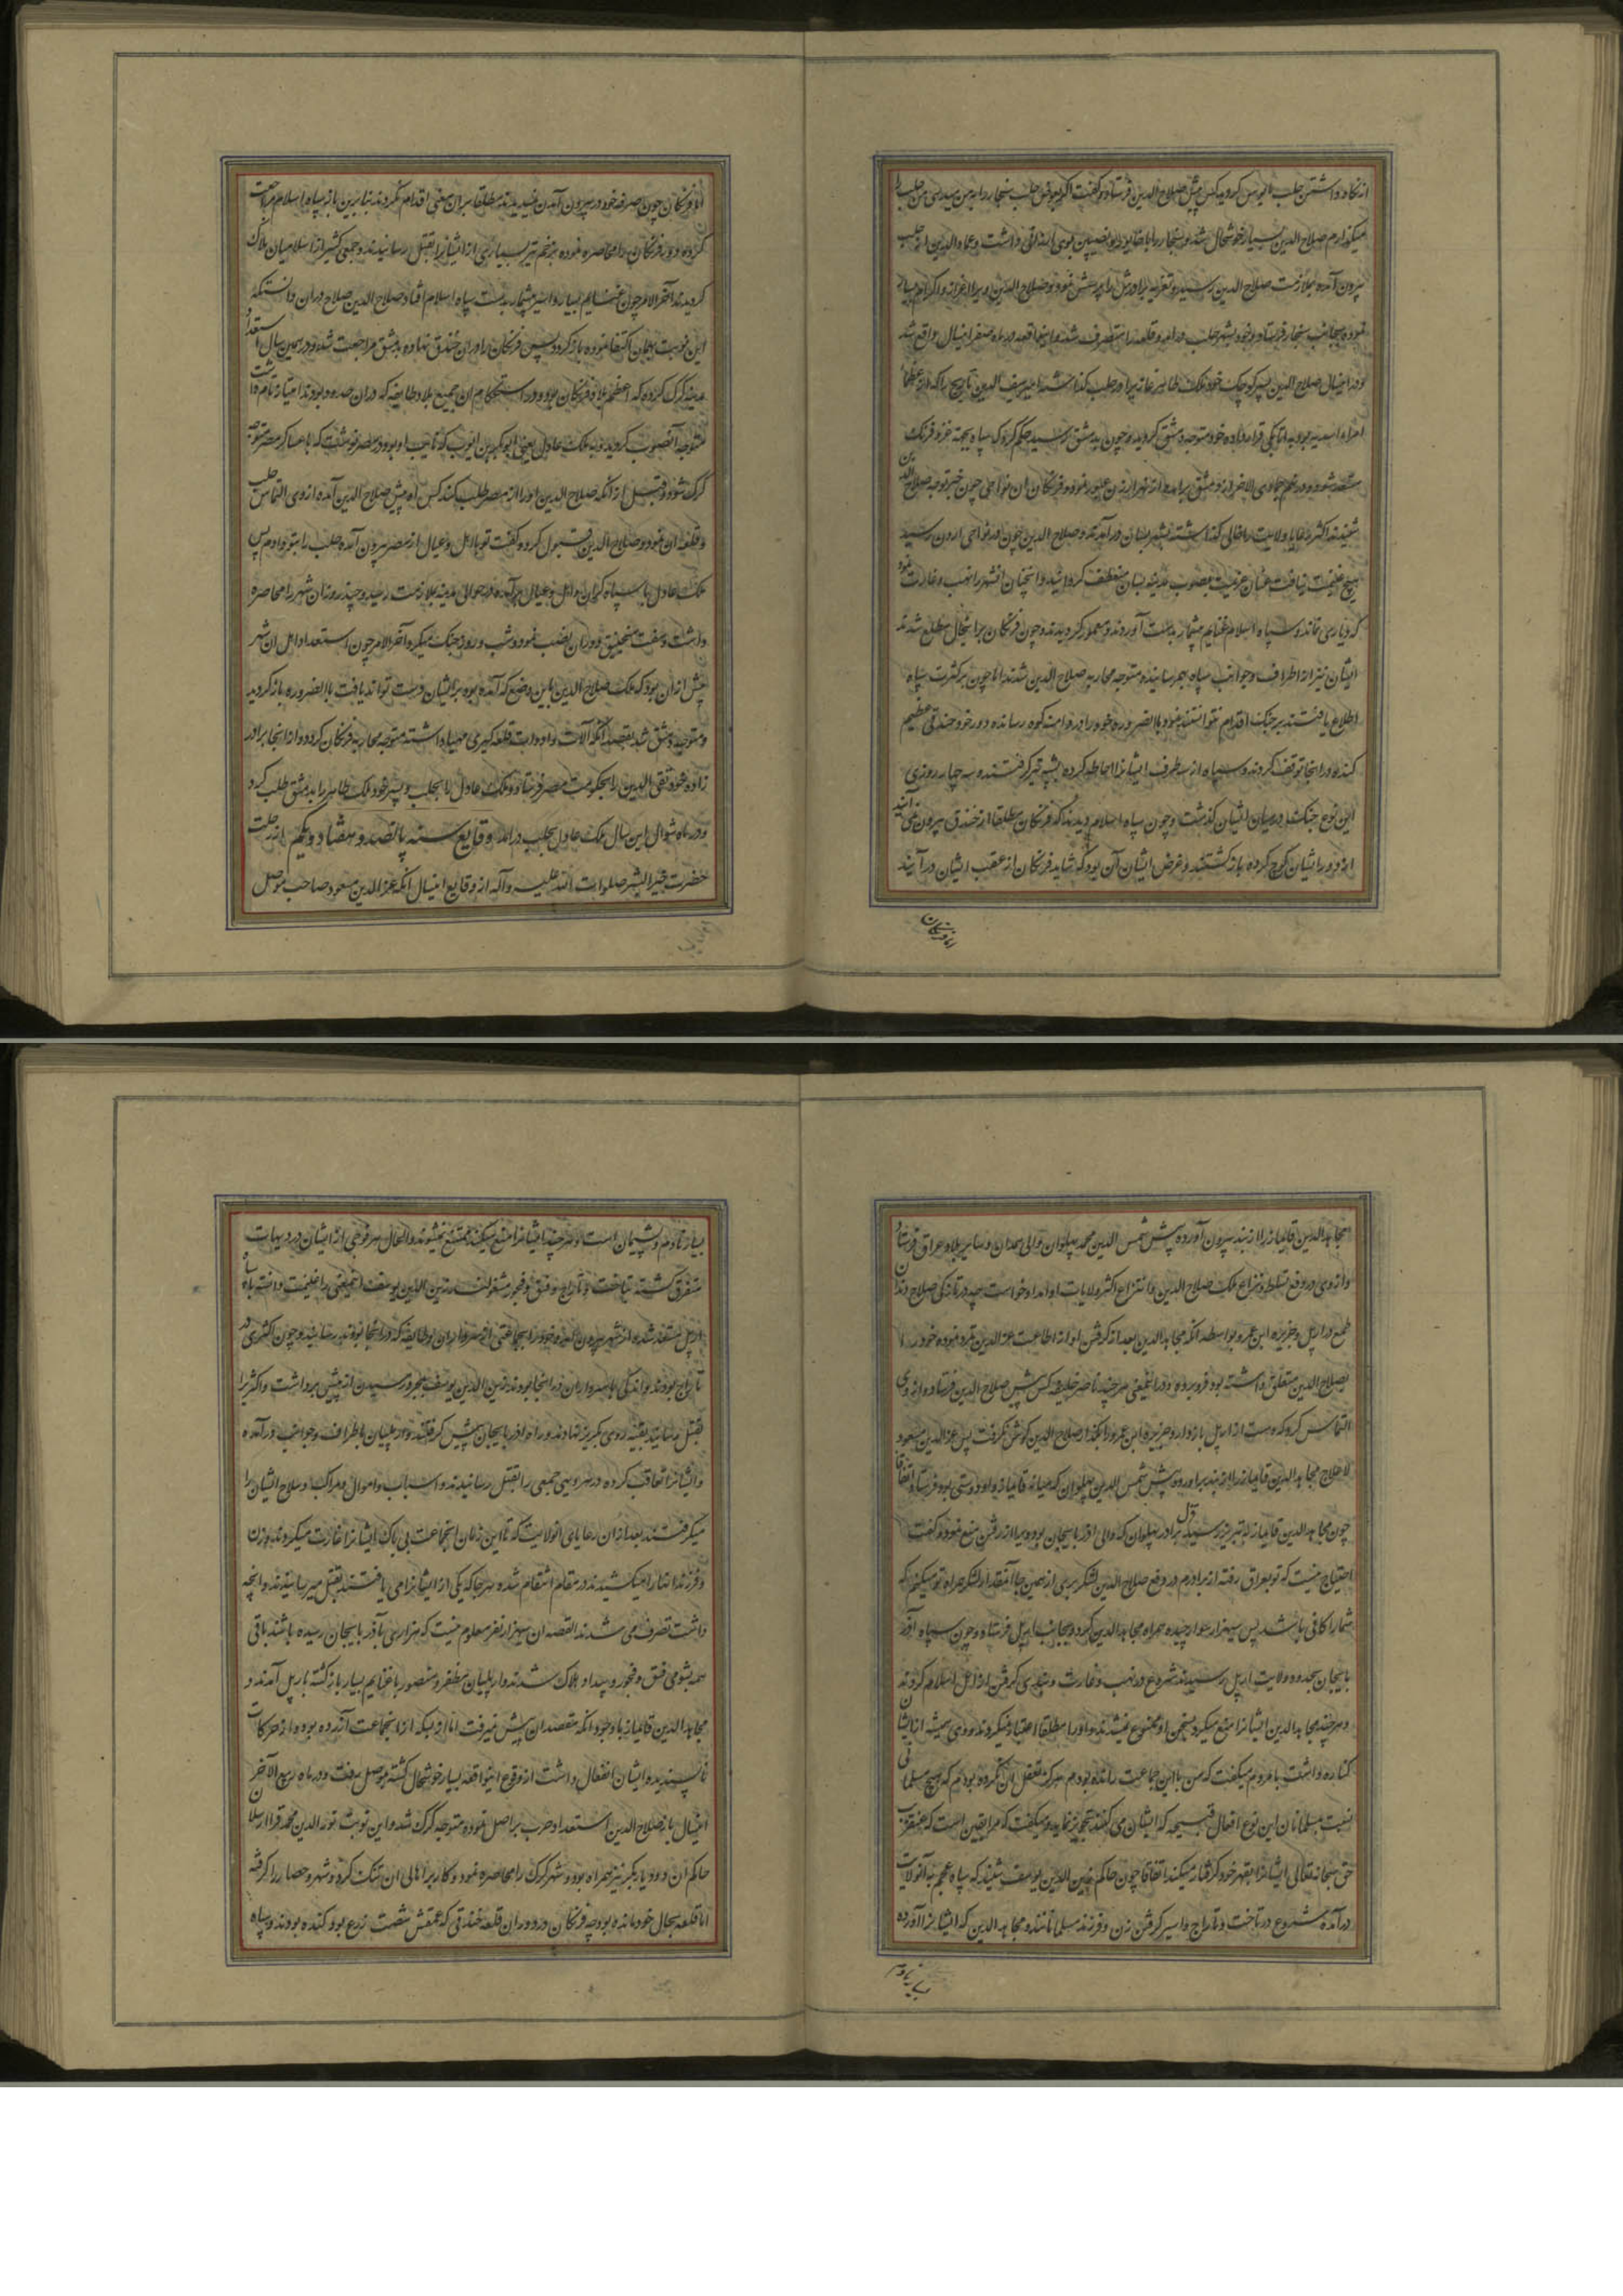 از نگاه داشتن حلب مایوس گردیده کس پیش صلاح الدین فرستاد و گفت اگر بعوض حلب سنجار را به من میدهی من حلب را
میگذارم صلاح الدین بسیار خوشحال شده سنجار را با
بیرون آمده بملازمت صلاح الدین رسید و
نموده بجانب سنجار فرستاد و خود بشهر حلب درآمد و قلعه را متصرف شد و اینواقعه در ماه صفر اینسال واقع شد
و در اینسال صلاح الدین پسر کوچک خود ملک طاهر غازیرا در حلب گذاشته امیر سیف الدین را که از عظمای
امراء اسدیه بود به اتابکی قرار داده خود متوجه دمشق گردید و چون بدمشق رسید حکم کرد که سپاه بجهة غزو فرنک
مستعد شوند و در نهم جمادی الاخر از دمشق برآمده از نهر اردن عبور نمود و فرنکان آن نواحی چون خبر توجه صلاح الدین
شنیدند اکثر رعایا ولایت را خالی گذاشته بشهر بیسان درآمدند و صلاح الدین چون در نواحی اردن رسید
هیچ غنیمت نیافت عنان عزیمت بصوب مدینه بیسان منعطف گردانید و آنچنان آنشهر را نهب و غارت نمود
که دیاری نماند و سپاه اسلام غنایم بیشمار بدست آوردند و معمور گردیدند و چون فرنکان برینحال مطلع شدند
ایشان نیز از اطراف و جوانب سپاه بهم رسانیده متوجه محاربه صلاح الدین شدند اما چون بر کثرت سپاه
اطلاع یافتند بر جنک اقدام نتوانستند نمود بالضروره خود را در دامنه کوه رسانده دور خود خندقی عظیم
کنده در آنجا توقف کردند و سپاه از سه طرف ایشانرا احاطه کرده به تیر گرفتند و به چهار روزی
این نوع جنک در میان ایشان گذشت و چون سپاه اسلام دیدند که فرنکان مطلقا از خندق بیرون نمی آیند
از دور ایشان کوچ کرده بازگشتند و غرض ایشان آن بود که شاید فرنکان از عقب ایشان در آیند
اما فرنکان
اما فرنکان چون صرفه خود در بیرون آمدن ندیدند مطلقا بر آن معنی اقدام نکردند بنابرین باز سپاه اسلام مراجعت
کرده دور فرنکان را محاصره نموده بزخم تیر بسیاری از ایشانرا بقتل رسانیدند و جمعی کثیر از اسلامیان هلاک
گردیدند آخر الامر چون غنایم بسیار و اسیر بیشمار بدست سپاه اسلام افتاد صلاح الدین صلاح در آن دانست که
این نوبت بهمان اکتفا نموده باز گردد پس فرنکان را در آن خندق نهاده بدمشق مراجعت نمود و در همین سال استعداد
مدینه کرک کرده که اعظم بلاد فرنکان بود و در استحکام از جمیع بلاد و طایفه که در آن حدود بودند امتیاز تمام داشت
متوجه آنصوب گردید و به ملک عادل یعنی ابوبکر بن ایوب که نایب او بود در مصر نوشت که با عساکر مصر متوجه
کرک شود و قبل از آنکه صلاح الدین او را از مصر طلب کند کس او پیش صلاح الدین آمده از وی التماس حلب
و قلعه آن نمود و صلاح الدین قبول کرد و گفت تو با اهل و عیال از مصر بیرون آمده حلب را بتو دادم پس
ملک عادل با سپاه گران و اهل و عیال برآمده در حوالی مدینه بملازمت رسید و چند روز آن شهر را محاصره
داشت و هفت منجنیق در آن نصب نمود و شب و روز جنک میکرد آخر الامر چون استعداد اهل آن شهر
بیش از آن بود که ملک صلاح الدین باین وضع که آمده بود بر ایشان دست تواند یافت بالضروره باز گردید
و متوجه دمشق شد بقصد آنکه آلات و ادوات قلعه گیری مهیا داشته متوجه محاربه فرنکان گردد و از آنجا برادر
زاده خود تقی الدین را بحکومت مصر فرستاد و ملک عادل را بحلب و پسر خود ملک طاهر را بدمشق طلب کرد
و در ماه شوال این سال ملک عادل بحلب درآمد وقایع سنه پانصد و هفتاد و یکم از رحلت
حضرت خیر البشر صلوات الله علیه و آله از وقایع اینسال آنکه عز الدین مسعود صاحب موصل
مجاهد الدین قایماز را از بند بیرون آورده پیش شمس الدین محمد پهلوان والی همدان و سایر بلاد عراق فرستاد
و از وی در دفع تسلط و نزاع ملک صلاح الدین و انتزاع اکثر ولایات او امداد خواست چه در تازکی صلاح الدین
طمع در اربل و جزیره ابن عمر بواسطه آنکه مجاهد الدین بعد از گرفتن او از اطاعت عز الدین تمرد نموده خود را
بصلاح الدین متعلق داشته بود فرو برده و در اینمعنی هرچند ناصر خلیفه کس پیش صلاح الدین فرستاد و از وی
التماس کرد که دست از اربل باز دارد و جزیره ابن عمر را بگذارد صلاح الدین گوش نگرفت پس عز الدین مسعود
لاعلاج مجاهد الدین قایماز را از بند برآورده پیش شمس الدین پهلوان که میانه قایماز و او دوستی بود فرستاد اتفاقا
چون مجاهد الدین قایماز به تبریز رسید قزل برادر پهلوان که والی آذربایجان بود ویرا از رفتن منع نمود و گفت
احتیاج نیست که تو بعراق رفته از برادرم در دفع صلاح الدین لشکر بری از همین جا آنقدر لشکر همراه تو میکنم که
شما را کافی باشد پس سه هزار سوار چیده همراه مجاهد الدین کرد و بجانب اربل فرستاد و چون سپاه آذر
بایجان بحدود ولایت اربل رسیدند شروع در نهب و غارت و بندی گرفتن از اهل اسلام کردند
و هرچند مجاهد الدین ایشانرا منع میکرد بسخن او ممنوع نمیشدند و او را مطلقا اعتبار نمیکردند و وی همیشه از ایشان
کناره داشت با مردم میگفت که من با این جماعت رانده بودم هرگز تعقل آن نکرده بودم که هیچ مسلمانی
نسبت بمسلمانان این نوع افعال قبیحه که ایشان می کنند تجویز نماید و میگفت که مرا یقین است که عنقریب
حق سبحانه تعالی ایشانرا بقهر خود گرفتار میکند اتفاقا چون حاکم زین الدین یوسف شنید که سپاه عجم به آنولایت
درآمده شروع در تاخت و تاراج و اسیر گرفتن زن و فرزند مسلمانانند و مجاهد الدین که ایشانرا آورده
بسیار نادم
بسیار نادم و پشیمان است و هرچند ایشانرا منع میکند ممتنع نمیشوند و الحال هر فوجی از ایشان در دیهات
متفرق گشته بتاخت و تاراج و فسق و فجور مشغولند زین الدین یوسف اینمعنی را غنیمت دانسته با سپاه
اربل مستعد شده از شهر بیرون آمده خود را بجماعتی از سرداران و طایفه که در آنجا بودند رسانید و چون اکثری در
تاراج بودند و اندکی با سرداران در آنجا بودند زین الدین یوسف بمجرد رسیدن از پیش برداشت و اکثر را
بقتل رسانید بقیه روی بگریز نهادند و راه آذربایجان پیش گرفتند و اربلیان باطراف و جوانب درآمده
و ایشانرا تعاقب کرده در هر دیهی جمعی را بقتل رسانیدند و اسباب و اموال و مراکب و سلاح ایشان را
میگرفتند بعد از آن رعایای آنولایت که تا این زمان آنجماعت بی باک ایشانرا غارت میکردند و زن
و فرزند آنها را میکشیدند در مقام انتقام شده هر جا که یکی از ایشانرا می یافتند بقتل میرسانیدند و آنچه
داشت تصرف می شدند القصه از آن سه هزار نفر معلوم نیست که هزار بآذربایجان رسیده باشند باقی
همه بشومی فسق و فجور و بیداد هلاک شدند و اربلیان مظفر و منصور با غنایم بسیار بازگشته باربل آمدند و
مجاهد الدین قایماز با وجود آنکه مقصد آن پیش نرفت اما از بسکه از آنجماعت آزرده بود و از حرکات
ناپسندیده ایشان انفعال داشت از وقوع اینواقعه بسیار خوشحال گشته بموصل رفت و در ماه ربیع الآخر
اینسال باز صلاح الدین استعداد حرب بر اصل نموده متوجه کرک شد و این نوبت نور الدین محمد قرا ارسلان
حاکم آن و دیاربکر نیز همراه بود و شهر کرک را محاصره نمود و کار بر اهالی آن تنک کرد و شهر و حصار را گرفته
اما قلعه بحال خود مانده بود چه فرنکان در دور آن قلعه خندقی که عمقش شصت زرع بود کنده بودند و سپاه